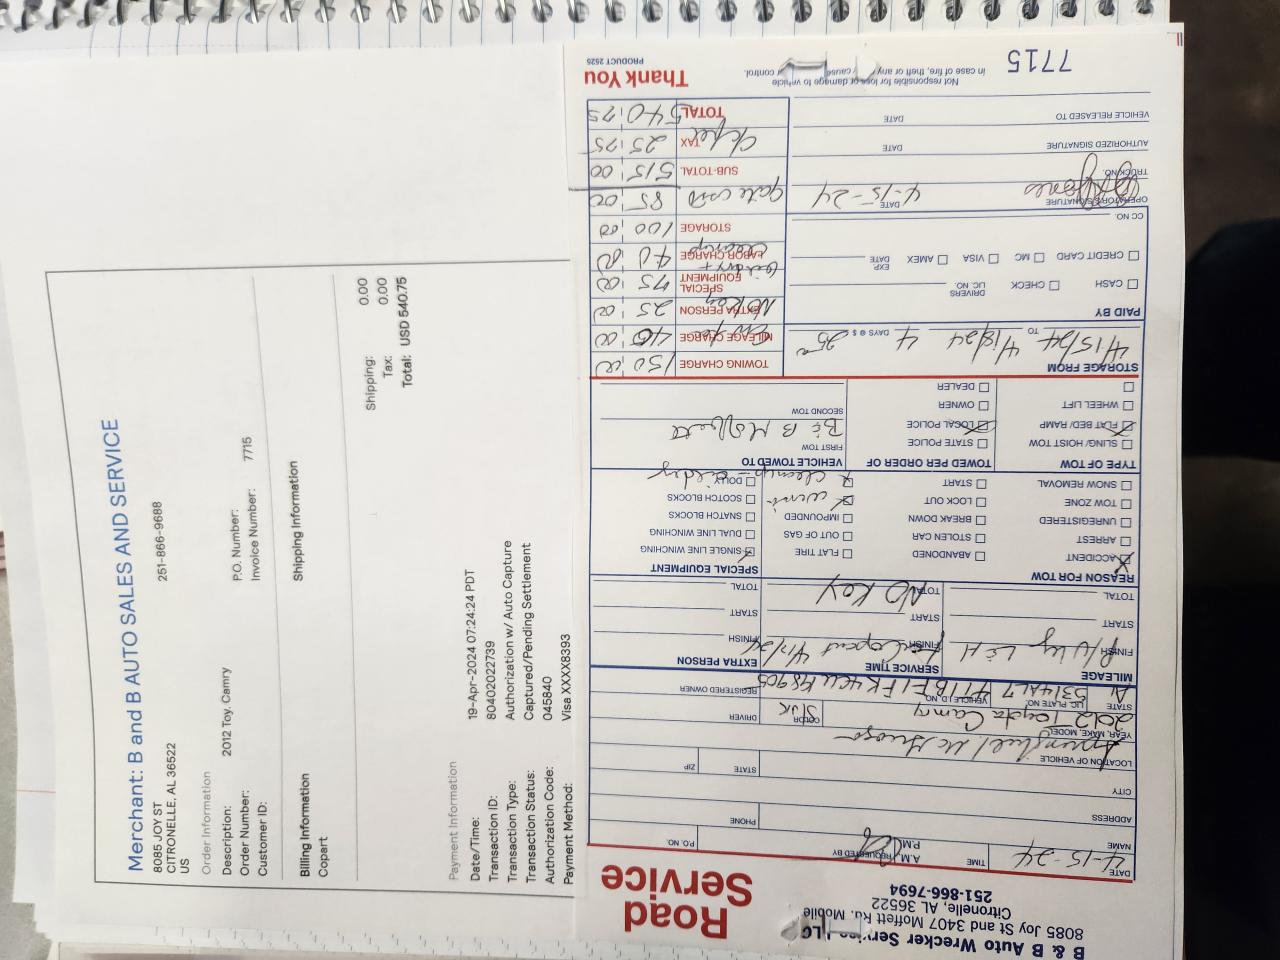 Merchant: B and B AUTO SALES AND SERVICE
8085 JOY ST
CITRONELLE, AL 36522
US
251-866-9688
Order Information
Description: 2012 Toy. Camry
Order Number:
P.O. Number:
Customer ID:
Invoice Number: 7715
Billing Information
Shipping Information
Copart
Shipping: 0.00
Tax: 0.00
Total: USD 540.75
Payment Information
Date/Time: 19-Apr-2024 07:24:24 PDT
Transaction ID: 80402022739
Transaction Type: Authorization w/ Auto Capture
Transaction Status: Captured/Pending Settlement
Authorization Code: 045840
Payment Method: Visa XXXX8393
B & B Auto Wrecker Service LLC
8085 Joy St and 3407 Moffett Rd. Mobile
Citronelle, AL 36522
251-866-7694
Road
Service
DATE 4-15-24 TIME A.M. P.M. REQUESTED BY P.O. NO.
NAME
ADDRESS PHONE
CITY STATE ZIP
LOCATION OF VEHICLE
YEAR, MAKE, MODEL 2012 Toyota Camry COLOR DRIVER
STATE Al LIC. PLATE NO. 5314AL7 VEHICLE I.D. NO. 4T1BF1FK4CU148905 REGISTERED OWNER
MILEAGE SERVICE TIME EXTRA PERSON
FINISH FINISH 4/17/24 FINISH
START START START
TOTAL TOTAL No Key TOTAL
REASON FOR TOW SPECIAL EQUIPMENT
ACCIDENT ABANDONED FLAT TIRE SINGLE LINE WINCHING
ARREST STOLEN CAR OUT OF GAS DUAL LINE WINCHING
UNREGISTERED BREAK DOWN IMPOUNDED SNATCH BLOCKS
TOW ZONE LOCK OUT SCOTCH BLOCKS
SNOW REMOVAL START DOLLY
TYPE OF TOW TOWED PER ORDER OF VEHICLE TOWED TO
SLING/ HOIST TOW STATE POLICE FIRST TOW
FLAT BED/ RAMP LOCAL POLICE B & B Moffett
WHEEL LIFT OWNER SECOND TOW
DEALER
STORAGE FROM 4/15/24 TO 4/18/24 4 DAYS @ $ 25
PAID BY
CASH CHECK DRIVERS LIC. NO.
CREDIT CARD MC VISA AMEX EXP DATE
CC NO.
OPERATOR'S SIGNATURE DATE 4-15-24
TRUCK NO.
AUTHORIZED SIGNATURE DATE
VEHICLE RELEASED TO DATE
TOWING CHARGE 150 00
MILEAGE CHARGE 40 00
EXTRA PERSON No Key 25 00
SPECIAL EQUIPMENT 75 00
LABOR CHARGE cleanup 40 00
STORAGE 100 00
85 00
SUB-TOTAL 515 00
TAX 25 75
TOTAL 540 75
Not responsible for loss or damage to vehicle
in case of fire, theft or any cause control.
Thank You
PRODUCT 2525
7715